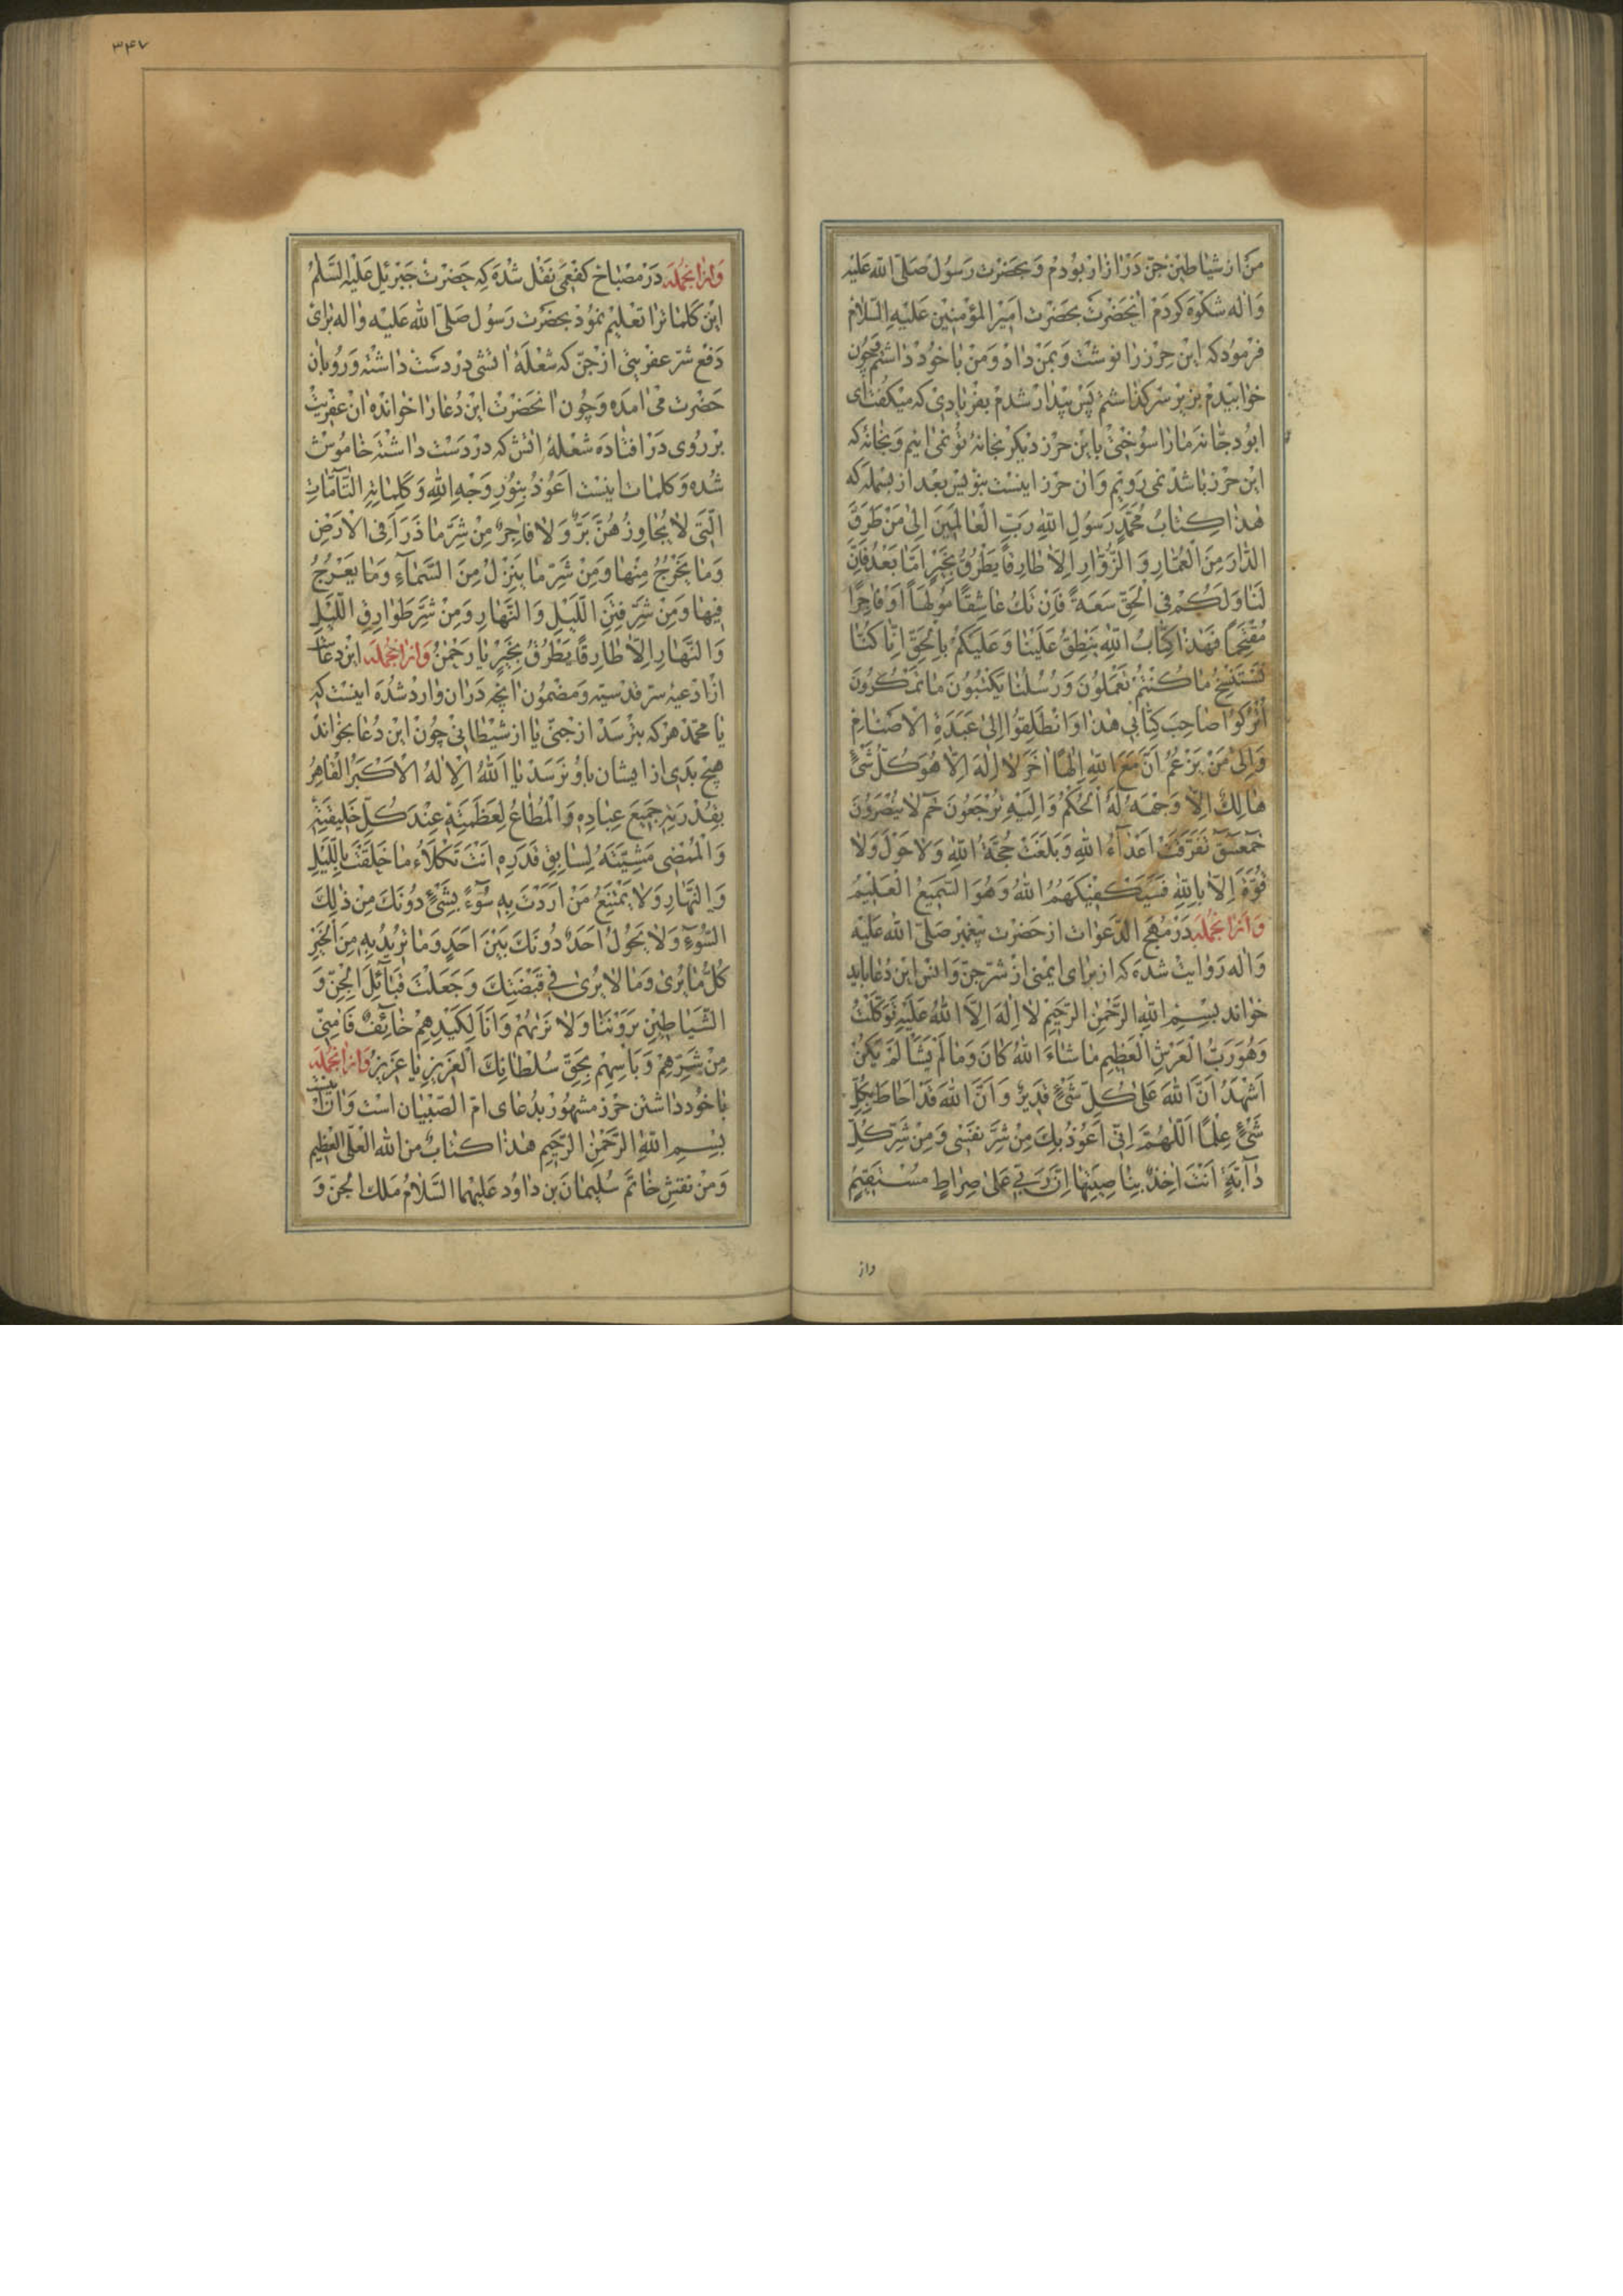 من از شیاطین جن در ازار بودم و بحضرت رسول صلی الله علیه
واله شکوه کردم انحضرت بحضرت امیر المؤمنین علیه السلام
فرمود که این حرز را نوشت و بمن داد و من با خود داشتم چون
خوابیدم بزیر سر گذاشتم پس بیدار شدم بفریادی که میکفت ای
ابو دجانه مارا سوختی باین حرز دیکر بخانه تو نمی ائیم و بخانه که
این حرز باشد نمی رویم و ان حرز اینست بنویس بعد از بسمله که
هذا کتاب محمد رسول الله رب العالمین الی من طرق
الدار من العمار و الزوار الا طارقا یطرق بخیر اما بعد فان
لنا و لکم فی الحق سعة فان تك عاشقا مولها او فاجرا
مقتحما فهذا کتاب الله ینطق علینا و علیکم بالحق انا کنا
نستنسخ ما کنتم تعملون و رسلنا یکتبون ما تمکرون
اترکوا صاحب کتابی هذا و انطلقوا الی عبدة الاصنام
و الی من یزعم ان مع الله الها اخر لا اله الا هو کل شیء
هالك الا وجهه له الحکم و الیه ترجعون حم لا ینصرون
حمعسق تفرقت اعداء الله و بلغت حجة الله و لا حول و لا
قوة الا بالله فسیکفیکهم الله و هو السمیع العلیم
و ازانجمله در مهج الدعوات از حضرت پیغمبر صلی الله علیه
واله روایت شده که از برای ایمنی از شر جن و انس این دعا باید
خواند بسم الله الرحمن الرحیم لا اله الا الله علیه توکلت
و هو رب العرش العظیم ما شاء الله کان و ما لم یشا لم یکن
اشهد ان الله علی کل شیء قدیر و ان الله قد احاط بکل
شیء علما اللهم انی اعوذ بك من شر نفسی و من شر کل
دابة انت اخذ بناصیتها ان ربی علی صراط مستقیم
واز
۳۴۷
و ازانجمله در مصباح کفعمی نقل شده که حضرت جبرئیل علیه السلام
این کلمات را تعلیم نمود بحضرت رسول صلی الله علیه واله برای
دفع شر عفریتی از جن که شعلهٔ اتشی در دست داشته و رو بان
حضرت می امده و چون انحضرت این دعا را خوانده ان عفریت
بر روی در افتاده شعلهٔ اتش که در دست داشته خاموش
شده و کلمات اینست اعوذ بنور وجه الله و کلماته التامات
التی لا یجاوزهن بر و لا فاجر من شر ما ذرا فی الارض
و ما یخرج منها و من شر ما ینزل من السماء و ما یعرج
فیها و من شر فتن اللیل و النهار و من شر طوارق اللیل
و النهار الا طارقا یطرق بخیر یا رحمن و ازانجمله این دعا
از ادعیهٔ سر قدسیه و مضمون انچه در ان وارد شده اینست که
یا محمد هر که بترسد از جنی یا از شیطانی چون این دعا بخواند
هیچ بدی از ایشان باو نرسد یا الله الاله الاکبر القاهر
بقدرته جمیع عباده و المطاع لعظمته عند کل خلیقته
و الممضی مشیته لسابق قدره انت تکلاء ما خلقت باللیل
و النهار و لا یمتنع من اردت به سوء بشیء دونك من ذلك
السوء و لا یحول احد دونك بین احد و ما ترید به من الخیر
کل ما یری و ما لا یری فی قبضتك و جعلت قبائل الجن و
الشیاطین یروننا و لا نریهم و انا لکیدهم خائف فامنی
من شرهم و باسهم بحق سلطانك العزیز یا عزیز و ازانجمله
با خود داشتن حرز مشهور بدعای ام الصبیان است و ان اینست
بسم الله الرحمن الرحیم هذا کتاب من الله العلی العظیم
و من نقش خاتم سلیمان بن داود علیهما السلام ملك الجن و